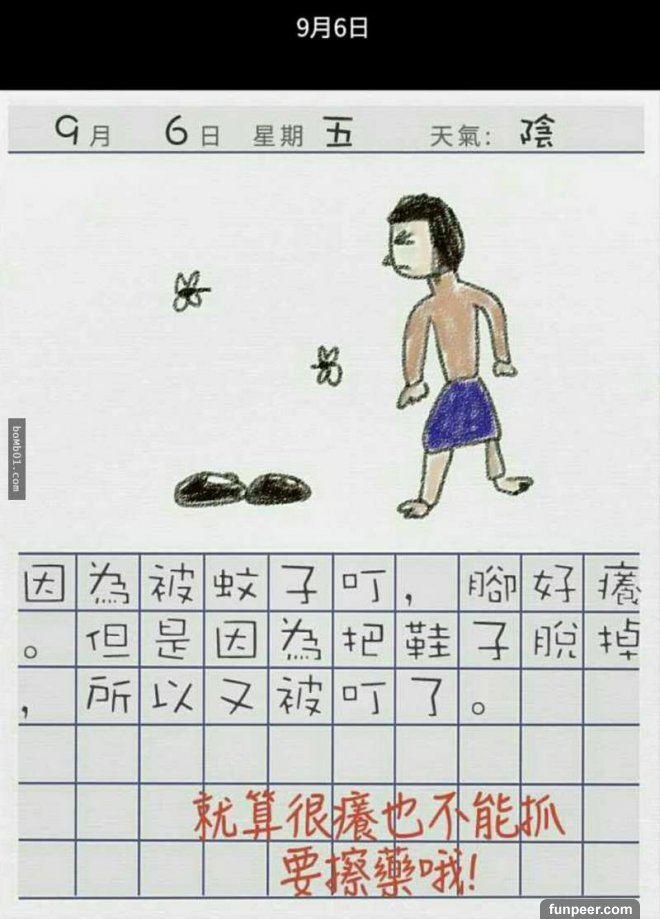 9月6日
9月 6日 星期 五 天氣: 陰
bomb01.com
因為被蚊子叮,腳好癢
。但是因為把鞋子脫掉
,所以又被叮了。
就算很癢也不能抓
要擦藥哦!
funpeer.com